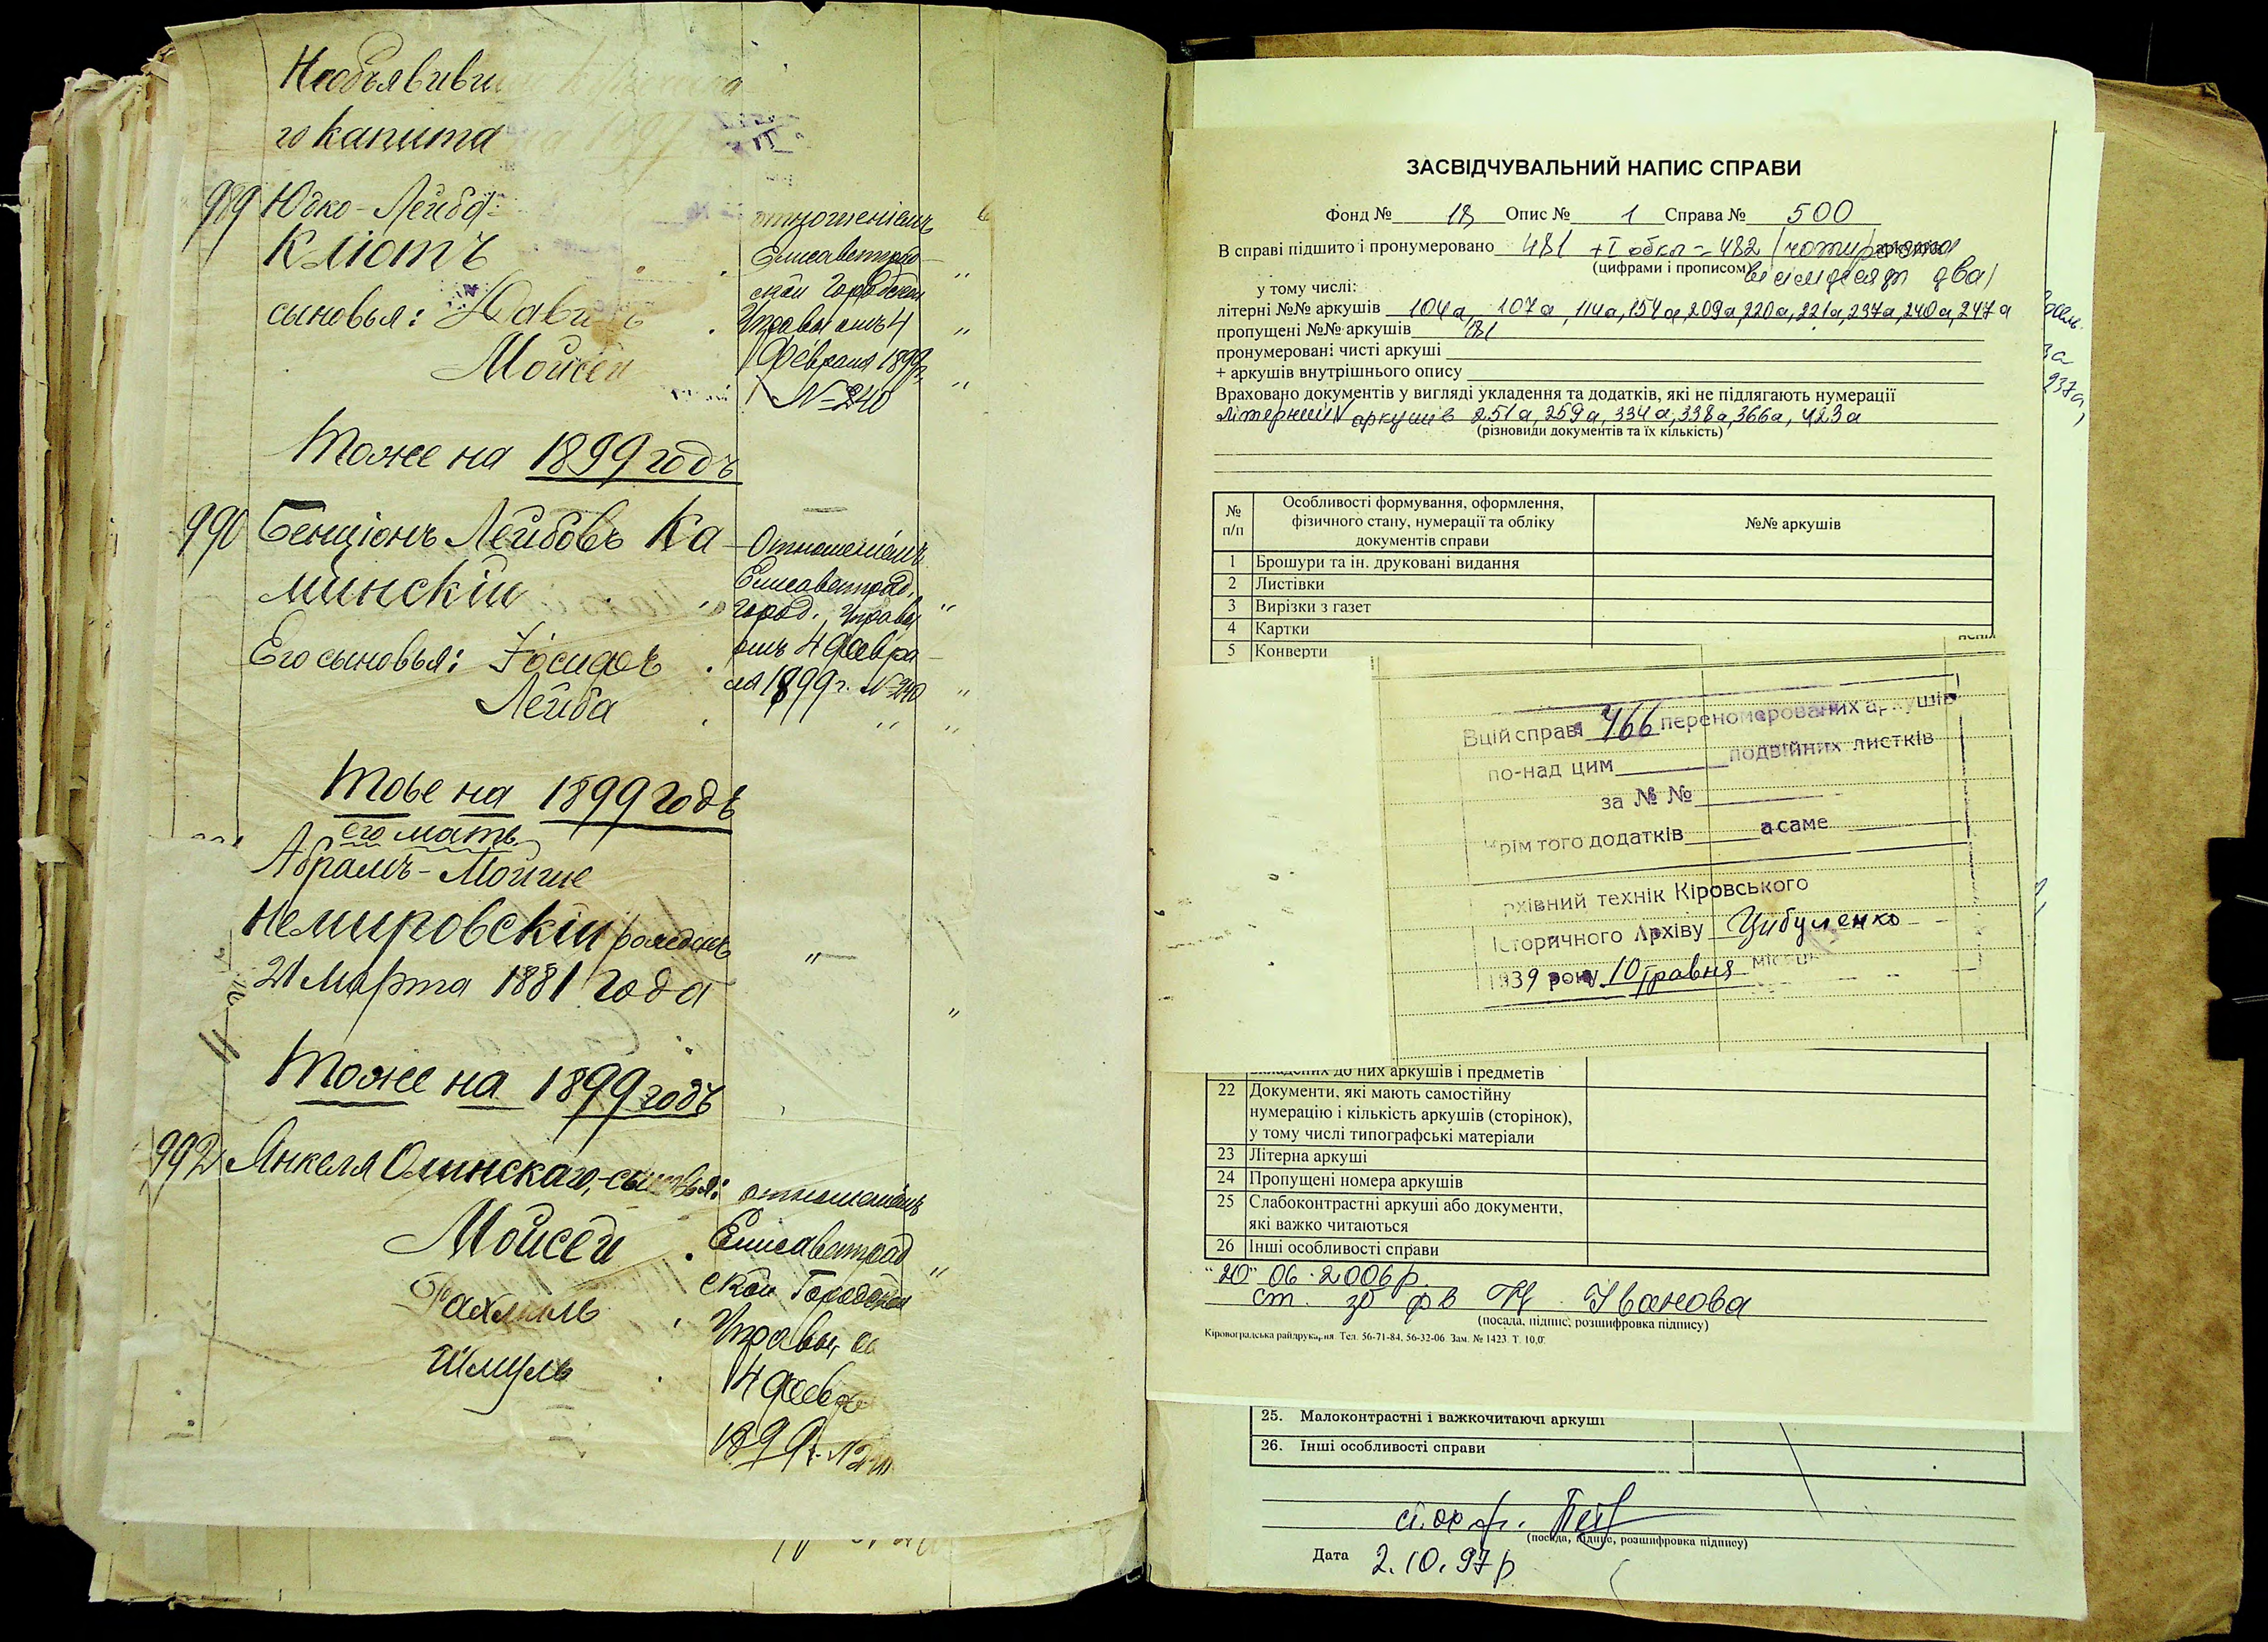 Необъявивши
го капита
989 Юдко-Лейба
Кліотъ
сыновья: Давидъ
Мойсей
отношеніемъ
Елисаветград-
ской Городской
Управы отъ 4
Февраля 1899 г.
№ 240
Тоже на 1899 годъ
990 Бенціонъ Лейбовъ Ка
минскій
Его сыновья: Іосифъ
Лейба
Отношеніемъ
Елисаветград.
город. Управы
отъ 4 Февра
ля 1899 г. № 240
Тоже на 1899 годъ
его мать
Абрамъ-Мойше
Немировскій рожденъ
21 Марта 1881 года
Тоже на 1899 годъ
992 Янкеля Олинскаго, сыновья:
Мойсей
Рахмиль
Шмуль
отношеніемъ
Елисаветград
ской Городской
Управы,
4 Февр
1899 г. № 240
ЗАСВІДЧУВАЛЬНИЙ НАПИС СПРАВИ
Фонд № 18 Опис № 1 Справа № 500
В справі підшито і пронумеровано 481 + I обкл = 482 (чотириста аркушів
(цифрами і прописом) вісімдесят два)
у тому числі:
літерні №№ аркушів 104а, 107а, 114а, 154а, 209а, 220а, 221а, 237а, 240а, 247а
пропущені №№ аркушів 181
пронумеровані чисті аркуші
+ аркушів внутрішнього опису
Враховано документів у вигляді укладення та додатків, які не підлягають нумерації
літерних аркушів 251а, 259а, 334а, 338а, 366а, 423а
(різновиди документів та їх кількість)
№ п/п
Особливості формування, оформлення,
фізичного стану, нумерації та обліку
документів справи
№№ аркушів
1 Брошури та ін. друковані видання
2 Листівки
3 Вирізки з газет
4 Картки
5 Конверти
В цій справі 466 переномерованих аркушів
по-над цим подвійних листків
за № №
Крім того додатків а саме
рхівний технік Кіровського
Історичного Архіву Цибуленко
1939 року 10 травня місяця
вкладених до них аркушів і предметів
22 Документи, які мають самостійну
нумерацію і кількість аркушів (сторінок),
у тому числі типографські матеріали
23 Літерна аркуші
24 Пропущені номера аркушів
25 Слабоконтрастні аркуші або документи,
які важко читаються
26 Інші особливості справи
"20" 06. 2006 р.
ст. зб фв Іванова
(посада, підпис, розшифровка підпису)
Кіровоградська райдрукарня. Тел. 56-71-84, 56-32-06. Зам. № 1423 Т. 10,0.
25. Малоконтрастні і важкочитаючі аркуші
26. Інші особливості справи
(посада, підпис, розшифровка підпису)
Дата 2.10.97 р